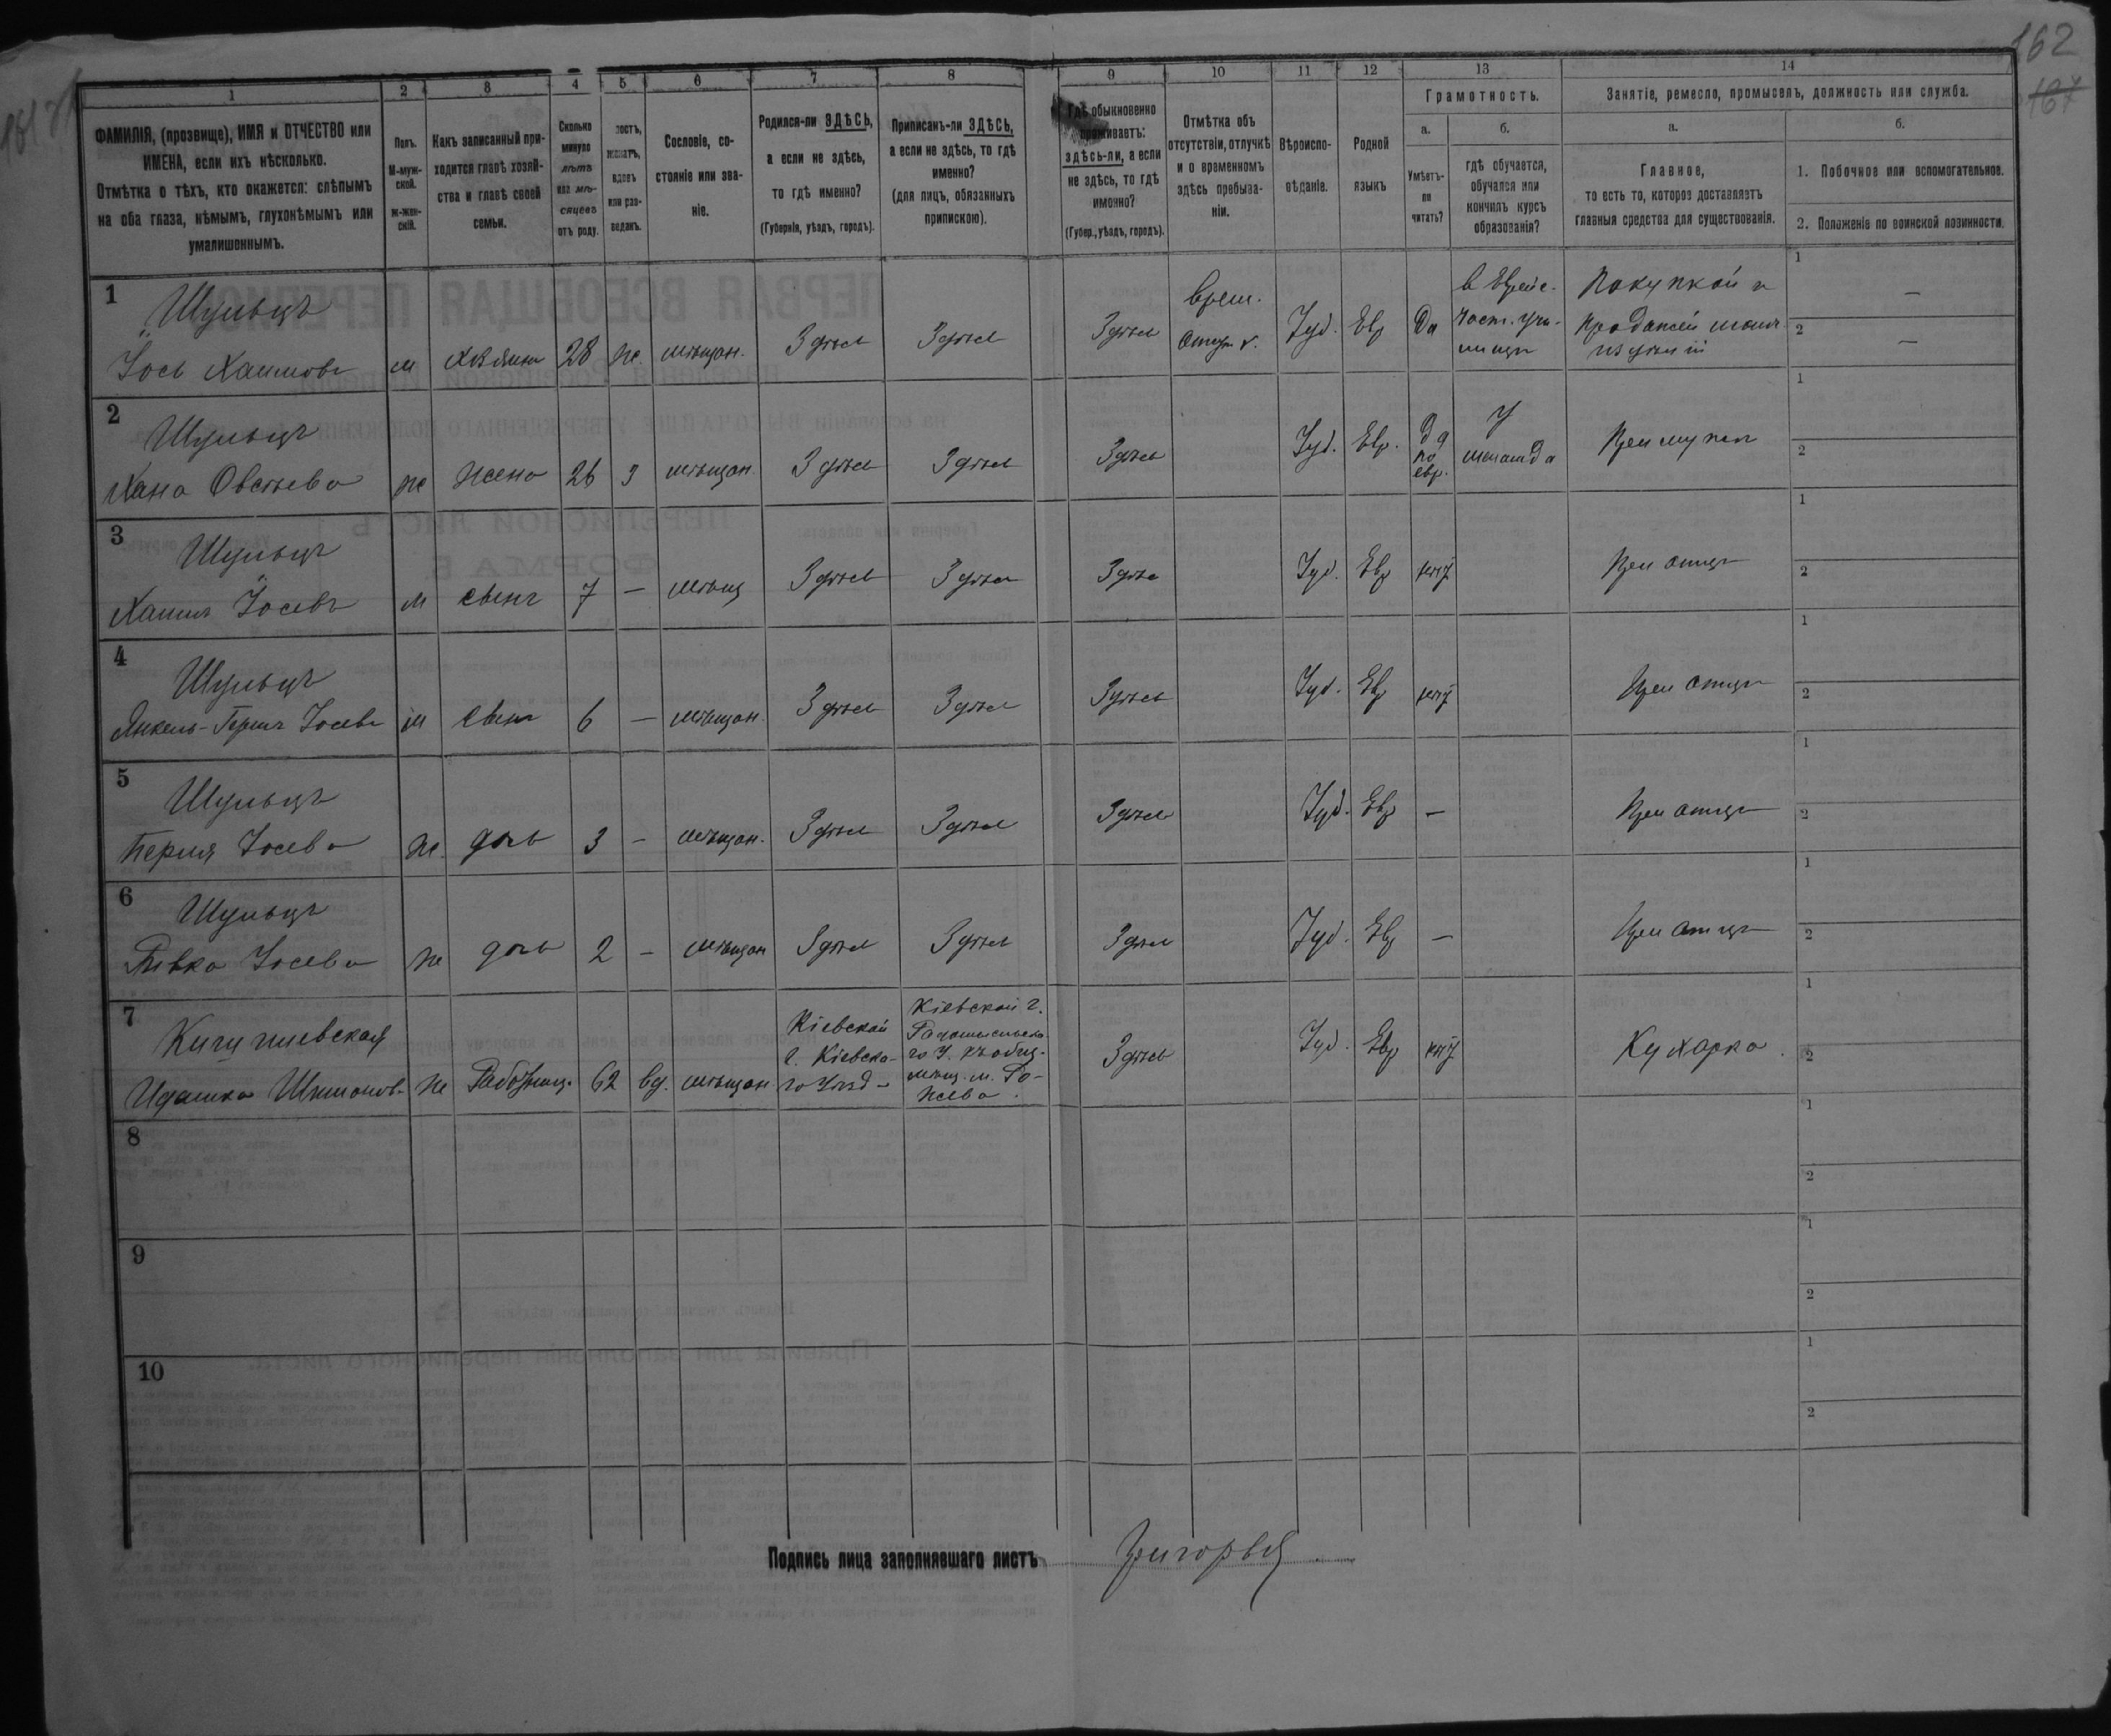 162
167
1 2 3 4 5 6 7 8 9 10 11 12 13 14
ФАМИЛІЯ, (прозвище), ИМЯ и ОТЧЕСТВО или
ИМЕНА, если ихъ нѣсколько.
Отмѣтка о тѣхъ, кто окажется: слѣпымъ
на оба глаза, нѣмымъ, глухонѣмымъ или
умалишеннымъ.
Полъ.
М-муж-
ской.
ж-жен-
скій.
Какъ записанный при-
ходится главѣ хозяй-
ства и главѣ своей
семьи.
Сколько
минуло
лѣтъ
или мѣ-
сяцевъ
отъ роду.
холостъ,
женатъ,
вдовъ
или раз-
веданъ.
Сословіе, со-
стояніе или зва-
ніе.
Родился-ли ЗДѢСЬ,
а если не здѣсь,
то гдѣ именно?
(Губернія, уѣздъ, городъ).
Приписанъ-ли ЗДѢСЬ,
а если не здѣсь, то гдѣ
именно?
(для лицъ, обязанныхъ
припискою).
Гдѣ обыкновенно
проживаетъ:
здѣсь-ли, а если
не здѣсь, то гдѣ
именно?
(Губер., уѣздъ, городъ).
Отмѣтка объ
отсутствіи, отлучкѣ
и о временномъ
здѣсь пребыва-
ніи.
Вѣроиспо-
вѣданіе.
Родной
языкъ
Грамотность.
а.
Умѣетъ-
ли
читать?
б.
гдѣ обучается,
обучался или
кончилъ курсъ
образованія?
Занятіе, ремесло, промыселъ, должность или служба.
а.
Главное,
то есть то, которое доставляетъ
главныя средства для существованія.
б.
1. Побочное или вспомогательное.
2. Положеніе по воинской повинности.
1
Шульцъ
Іось Хаимовъ
м хозяинъ 28 ж. мѣщан. Здѣсь Здѣсь Здѣсь
врем.
Іуд. Евр Да
в Еврейс.
част. учи-
лищѣ
Покупкой и
продажей
1 —
2 —
2
Шульцъ
Хана Овсѣева
ж жена 26 з мѣщан Здѣсь Здѣсь Здѣсь Іуд. Евр.
да
по
евр.
У
меламда
При мужѣ
1
2
3
Шульцъ
Хаимъ Іосевъ
м сынъ 7 — мѣщ Здѣсь Здѣсь Здѣсь Іуд. Евр нѣт При отцѣ
1
2
4
Шульцъ
Янкель-Гершъ Іосевъ
м сынъ 6 — мѣщан. Здѣсь Здѣсь Здѣсь Іуд. Евр нѣт При отцѣ
1
2
5
Шульцъ
Перля Іосева
ж. дочь 3 — мѣщан. Здѣсь Здѣсь Здѣсь Іуд. Евр — При отцѣ
1
2
6
Шульцъ
Ривка Іосева
ж дочь 2 — мѣщан Здѣсь Здѣсь Здѣсь Іуд. Евр — При отцѣ
1
2
7
Шимонов.
ж Работниц. 62 вд. мѣщан
Кіевской
г. Кіевска-
го Уѣзд
Кіевской г.
Радомысльска
го У.
Здѣсь Іуд. Евр нѣт Кухарка
1
2
8
1
2
9
1
2
10
1
2
Подпись лица заполнявшаго листъ